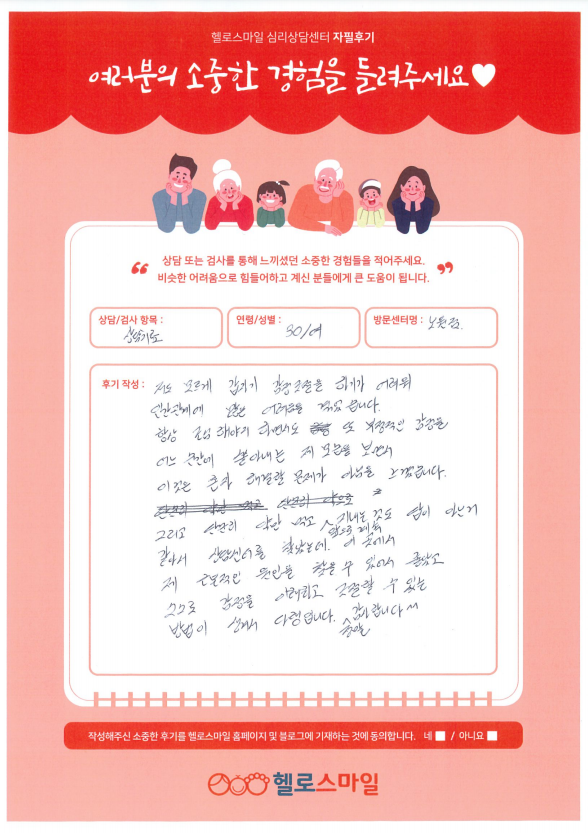 헬로스마일 심리상담센터 자필후기
여러분의 소중한 경험을 들려주세요
상담 또는 검사를 통해 느끼셨던 소중한 경험들을 적어주세요.
비슷한 어려움으로 힘들어하고 계신 분들에게 큰 도움이 됩니다.
상담/검사 항목 : 심리치료
연령/성별 : 30/여
방문센터명 : 노원점
후기 작성 : 저도 모르게 갑자기 감정조절을 하기가 어려워
인간관계에 많은 어려움을 겪었습니다.
항상 조심 해야지 하면서도 또 부정적인 감정을
어느 순간에 쏟아내는 제 모습을 보면서
이것은 혼자 해결할 문제가 아님을 느꼈습니다.
그리고 단순히 약만 먹고 앞으로 계속 지내는 것도 답이 아닌거
같아서 상담센터를 찾았는데, 이 곳에서
제 근본적인 원인을 찾을 수 있어서 좋았고
스스로 감정을 이해하고 조절할 수 있는
방법이 생겨서 다행입니다. 정말 감사합니다
작성해주신 소중한 후기를 헬로스마일 홈페이지 및 블로그에 기재하는 것에 동의합니다. 네 / 아니요
헬로스마일